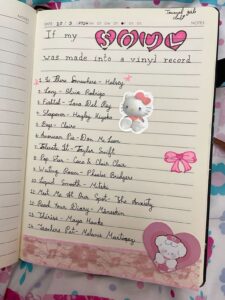 NOTES
DATE 20/3/2024
If my SOUL
was made into a vinyl record
1. Is There Somewhere - Halsey
2. Lacy - Olivia Rodrigo
3. Fishtail - Lana Del Rey
4. Sleepover - Hayley Kiyoko
5. Bags - Clairo
6. American Pie - Don Mc Lean
7. Tolerate It - Taylor Swift
8. Pop Star - Coco & Clair Clair
9. Waiting Room - Phoebe Bridgers
10. Liquid Smooth - Mitski
11. Meet Me At Our Spot - The Anxiety
12. Read Your Diary - Måneskin
13. Thérèse - Maya Hawke
14. Teachers Pet - Melanie Martinez
NOTES